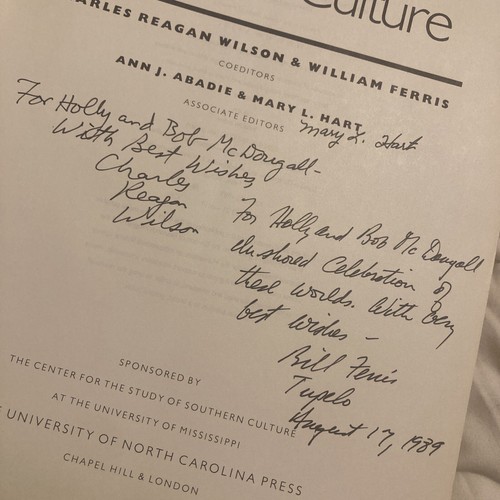 Culture
CHARLES REAGAN WILSON & WILLIAM FERRIS
COEDITORS
ANN J. ABADIE & MARY L. HART
ASSOCIATE EDITORS
Mary L. Hart
For Holly and Bob McDougall-
With Best Wishes,
Charles
Reagan
Wilson
For Holly and Bob McDougall
in shared Celebration of
these worlds. With very
best wishes -
Bill Ferris
Tupelo
August 17, 1989
SPONSORED BY
THE CENTER FOR THE STUDY OF SOUTHERN CULTURE
AT THE UNIVERSITY OF MISSISSIPPI
UNIVERSITY OF NORTH CAROLINA PRESS
CHAPEL HILL & LONDON